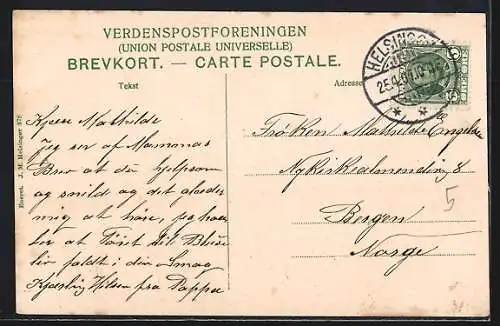 VERDENSPOSTFORENINGEN
(UNION POSTALE UNIVERSELLE)
BREVKORT. — CARTE POSTALE.
Tekst
Adresse
HELSINGØR
Eneret. J. M. Helsingør 878
Kjære Mathilde
Jeg ser af Mammas
Brev at du er hjelpsom
og snild og det glæder
mig at høre, jeg haaber
at Tøiet til
faldt i din Smag
Kjærlig Hilsen fra Pappa
Frøken Mathilde Engelsen
Nykirkealmending 8
Bergen
Norge
5